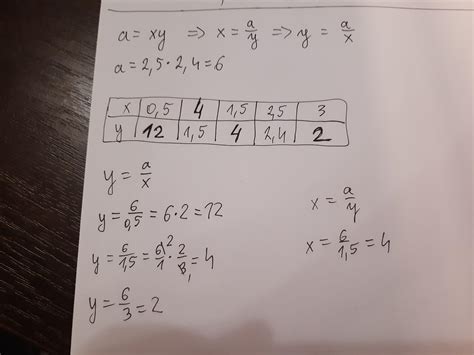 a = xy ⇒ x = a/y ⇒ y = a/x
a = 2,5 · 2,4 = 6
x 0,5 4 1,5 2,5 3
y 12 1,5 4 2,4 2
y = a/x
y = 6/0,5 = 6·2 = 12
x = a/y
y = 6/1,5 = 6²/1 · 2/3₁ = 4
x = 6/1,5 = 4
y = 6/3 = 2